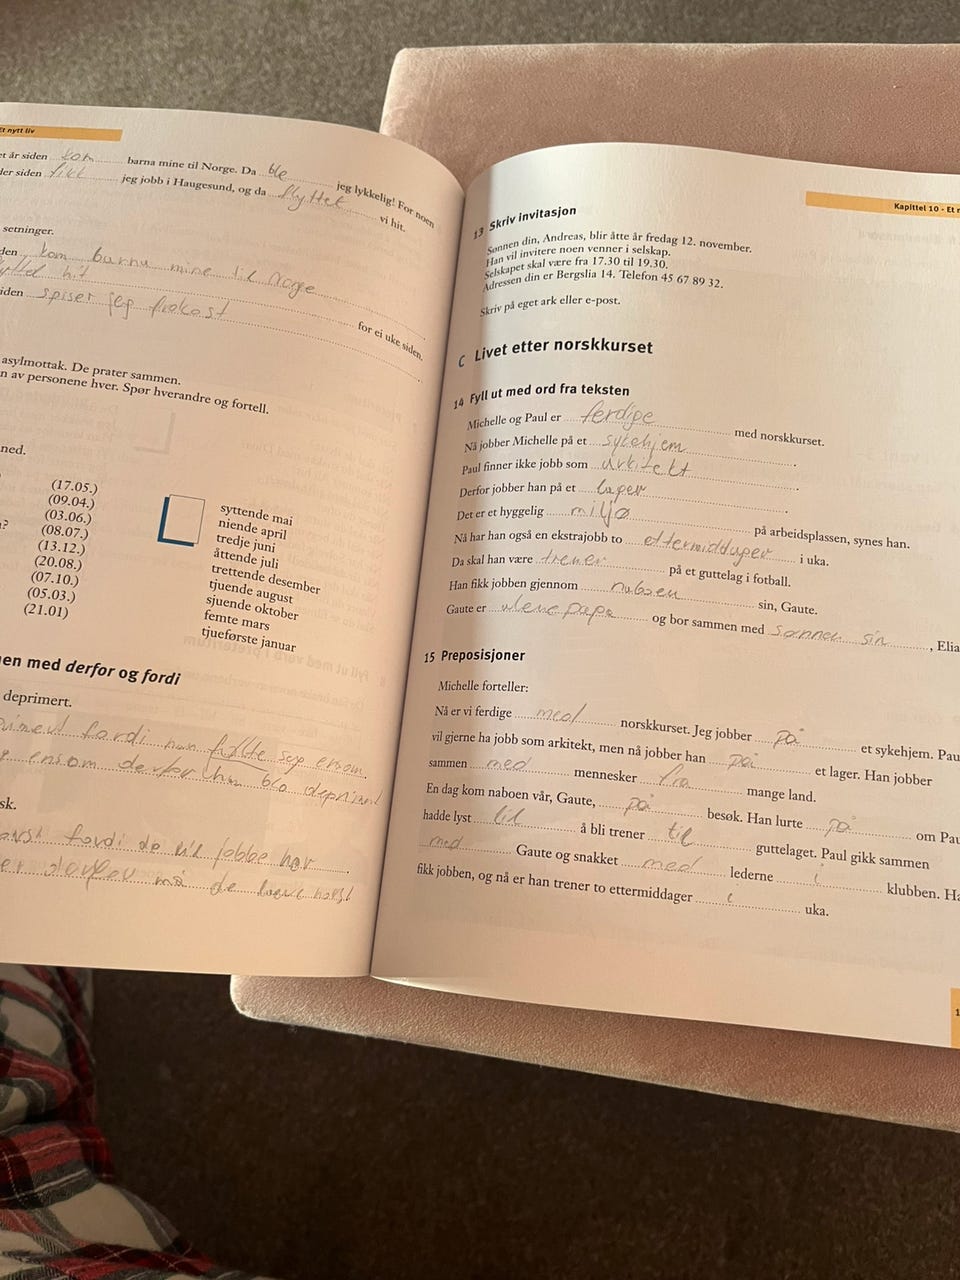 Et nytt liv
et år siden kom barna mine til Norge. Da ble jeg lykkelig! For noen
der siden fikk jeg jobb i Haugesund, og da flyttet vi hit.
setninger.
den kom barna mine til Norge
hit
iden spiser jeg frokost for ei uke siden.
asylmottak. De prater sammen.
n av personene hver. Spør hverandre og fortell.
ned.
(17.05.)
(09.04.)
(03.06.)
(08.07.)
(13.12.)
(20.08.)
(07.10.)
(05.03.)
(21.01)
syttende mai
niende april
tredje juni
åttende juli
trettende desember
tjuende august
sjuende oktober
femte mars
tjueførste januar
nen med derfor og fordi
deprimert.
fordi han følte seg ensom.
ensom derfor han ble deprimert
sk.
fordi de vil jobbe her
derfor må de lære norsk
Kapittel 10 - Et n
13 Skriv invitasjon
Sønnen din, Andreas, blir åtte år fredag 12. november.
Han vil invitere noen venner i selskap.
Selskapet skal være fra 17.30 til 19.30.
Adressen din er Bergslia 14. Telefon 45 67 89 32.
Skriv på eget ark eller e-post.
C Livet etter norskkurset
14 Fyll ut med ord fra teksten
Michelle og Paul er ferdige med norskkurset.
Nå jobber Michelle på et sykehjem.
Paul finner ikke jobb som arkitekt.
Derfor jobber han på et lager.
Det er et hyggelig miljø på arbeidsplassen, synes han.
Nå har han også en ekstrajobb to ettermiddager i uka.
Da skal han være trener på et guttelag i fotball.
Han fikk jobben gjennom naboen sin, Gaute.
Gaute er alenepapa og bor sammen med sønnen sin, Elia
15 Preposisjoner
Michelle forteller:
Nå er vi ferdige med norskkurset. Jeg jobber på et sykehjem. Pau
vil gjerne ha jobb som arkitekt, men nå jobber han på et lager. Han jobber
sammen med mennesker fra mange land.
En dag kom naboen vår, Gaute, på besøk. Han lurte på om Pau
hadde lyst til å bli trener til guttelaget. Paul gikk sammen
med Gaute og snakket med lederne i klubben. Ha
fikk jobben, og nå er han trener to ettermiddager i uka.
1